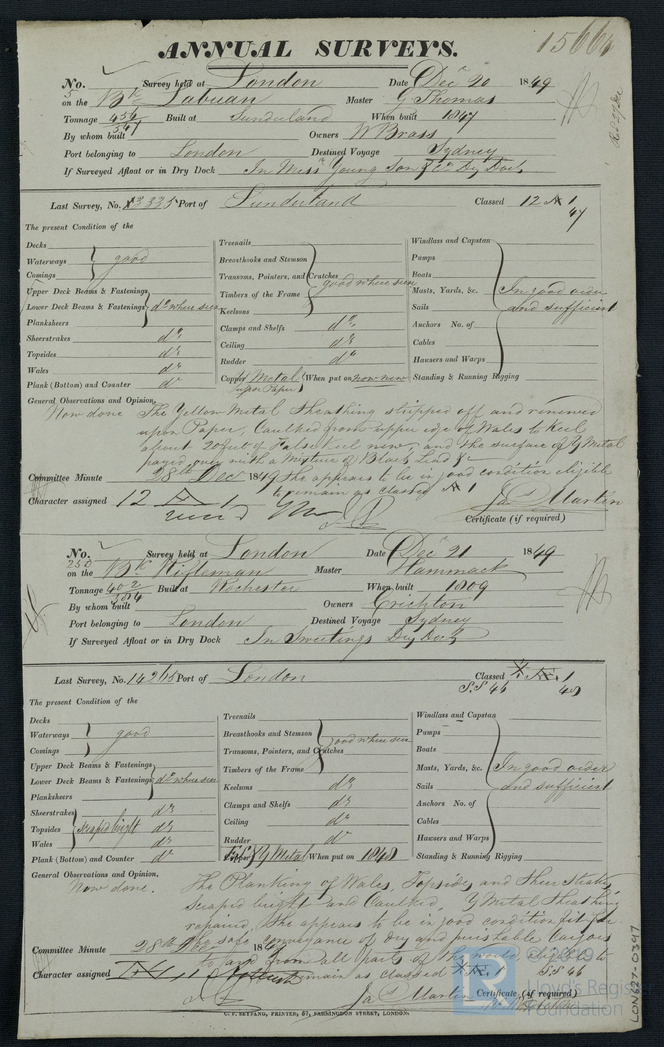 15664
ANNUAL SURVEYS.
No. Survey held at London Date Decr 20 1849
5 on the Bk Labuan Master G Thomas
Tonnage 456 Built at Sunderland When built 1847
By whom built Owners W Brass
Port belonging to London Destined Voyage Sydney
If Surveyed Afloat or in Dry Dock In Messrs Young Son & Co Dry Dock
Last Survey, No. Port of Sunderland Classed 12 A 1
47
The present Condition of the
Decks
Waterways good
Comings
Upper Deck Beams & Fastenings
Lower Deck Beams & Fastenings do where seen
Planksheers
Sheerstrakes do
Topsides do
Wales do
Plank (Bottom) and Counter do
Treenails
Breasthooks and Stemson
Transoms, Pointers, and Crutches good where seen
Timbers of the Frame
Keelsons
Clamps and Shelfs do
Ceiling do
Rudder do
Copper Y Metal When put on now new
upon Paper
Windlass and Capstan
Pumps
Boats
Masts, Yards, &c. In good order
Sails and sufficient
Anchors No. of
Cables
Hawsers and Warps
Standing & Running Rigging
General Observations and Opinion,
Now done The Yellow Metal Sheathing stripped off and renewed
upon Paper, Caulked from upper edge of Wales to Keel
about 20 feet of False Keel new, and the surface of Y Metal
payed over with a mixture of Black Lead &c
Committee Minute 28th Decr 1849 She appears to be in good condition eligible
to remain as classed A 1
Character assigned 12 A 1 Jas Martin
Certificate (if required)
No. Survey held at London Date Decr 21 1849
250 on the Bk Rifleman Master Hammack
Tonnage 402 Built at Rochester When built 1809
By whom built Owners Crichton
Port belonging to London Destined Voyage Sydney
If Surveyed Afloat or in Dry Dock In Sweetings Dry Dock
Last Survey, No. 14265 Port of London Classed Æ 1
S.S 46 48
The present Condition of the
Decks
Waterways good
Comings
Upper Deck Beams & Fastenings
Lower Deck Beams & Fastenings do where seen
Planksheers
Sheerstrakes do
Topsides scraped bright do
Wales do
Plank (Bottom) and Counter do
Treenails
Breasthooks and Stemson good where seen
Transoms, Pointers, and Crutches
Timbers of the Frame
Keelsons do
Clamps and Shelfs do
Ceiling do
Rudder do
Y Metal When put on 1848
Windlass and Capstan
Pumps
Boats
Masts, Yards, &c. In good order
Sails and sufficient
Anchors No. of
Cables
Hawsers and Warps
Standing & Running Rigging
General Observations and Opinion,
Now done. The Planking of Wales, Topsides and Sheer Strakes
scraped bright and Caulked. Y Metal Sheathing
repaired, She appears to be in good condition fit for
Committee Minute 28th Dec 1849 safe conveyance of dry and perishable cargoes
to and from all parts of the world eligible to
Character assigned remain as classed Æ 1 SS 46
Jas Martin Certificate (if required)
C. F. SEYFANG, PRINTER, 57, FARRINGDON STREET, LONDON.
LON627-0347
Lloyd's Register
Foundation